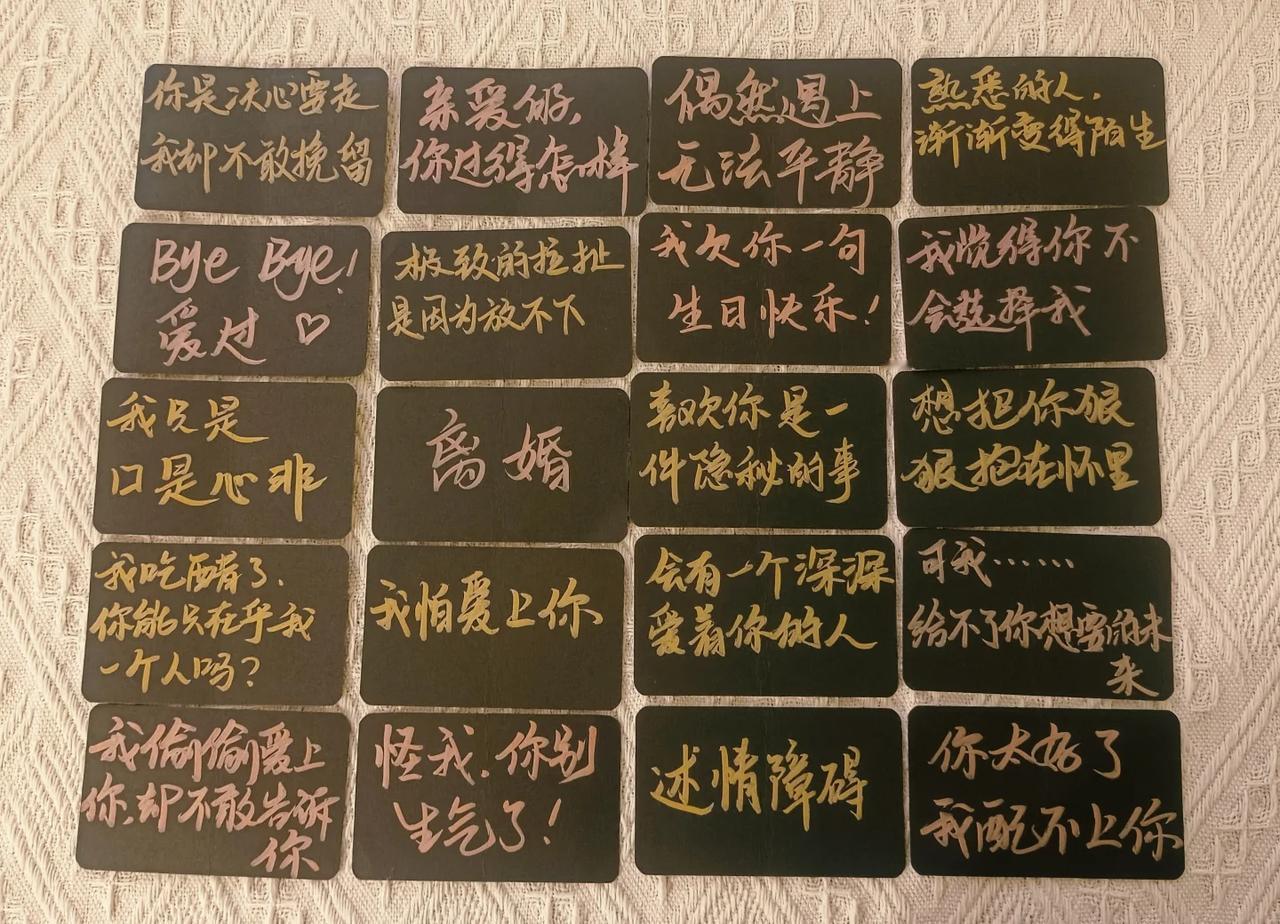 你是决心要走
我却不敢挽留
亲爱的你,
你过得怎样
偶然遇上
无法平静
熟悉的人,
渐渐变得陌生
Bye Bye!
爱过♡
极致的拉扯
是因为放不下
我欠你一句
生日快乐!
我觉得你不
会选择我
我只是
口是心非
离婚
喜欢你是一
件隐秘的事
想把你狠
狠抱在怀里
我吃醋了.
你能只在乎我
一个人吗?
我怕爱上你
会有一个深深
爱着你的人
可我……
给不了你想要的未
来
我偷偷爱上
你,却不敢告诉
你
怪我.你别
生气了!
述情障碍
你太好了
我配不上你